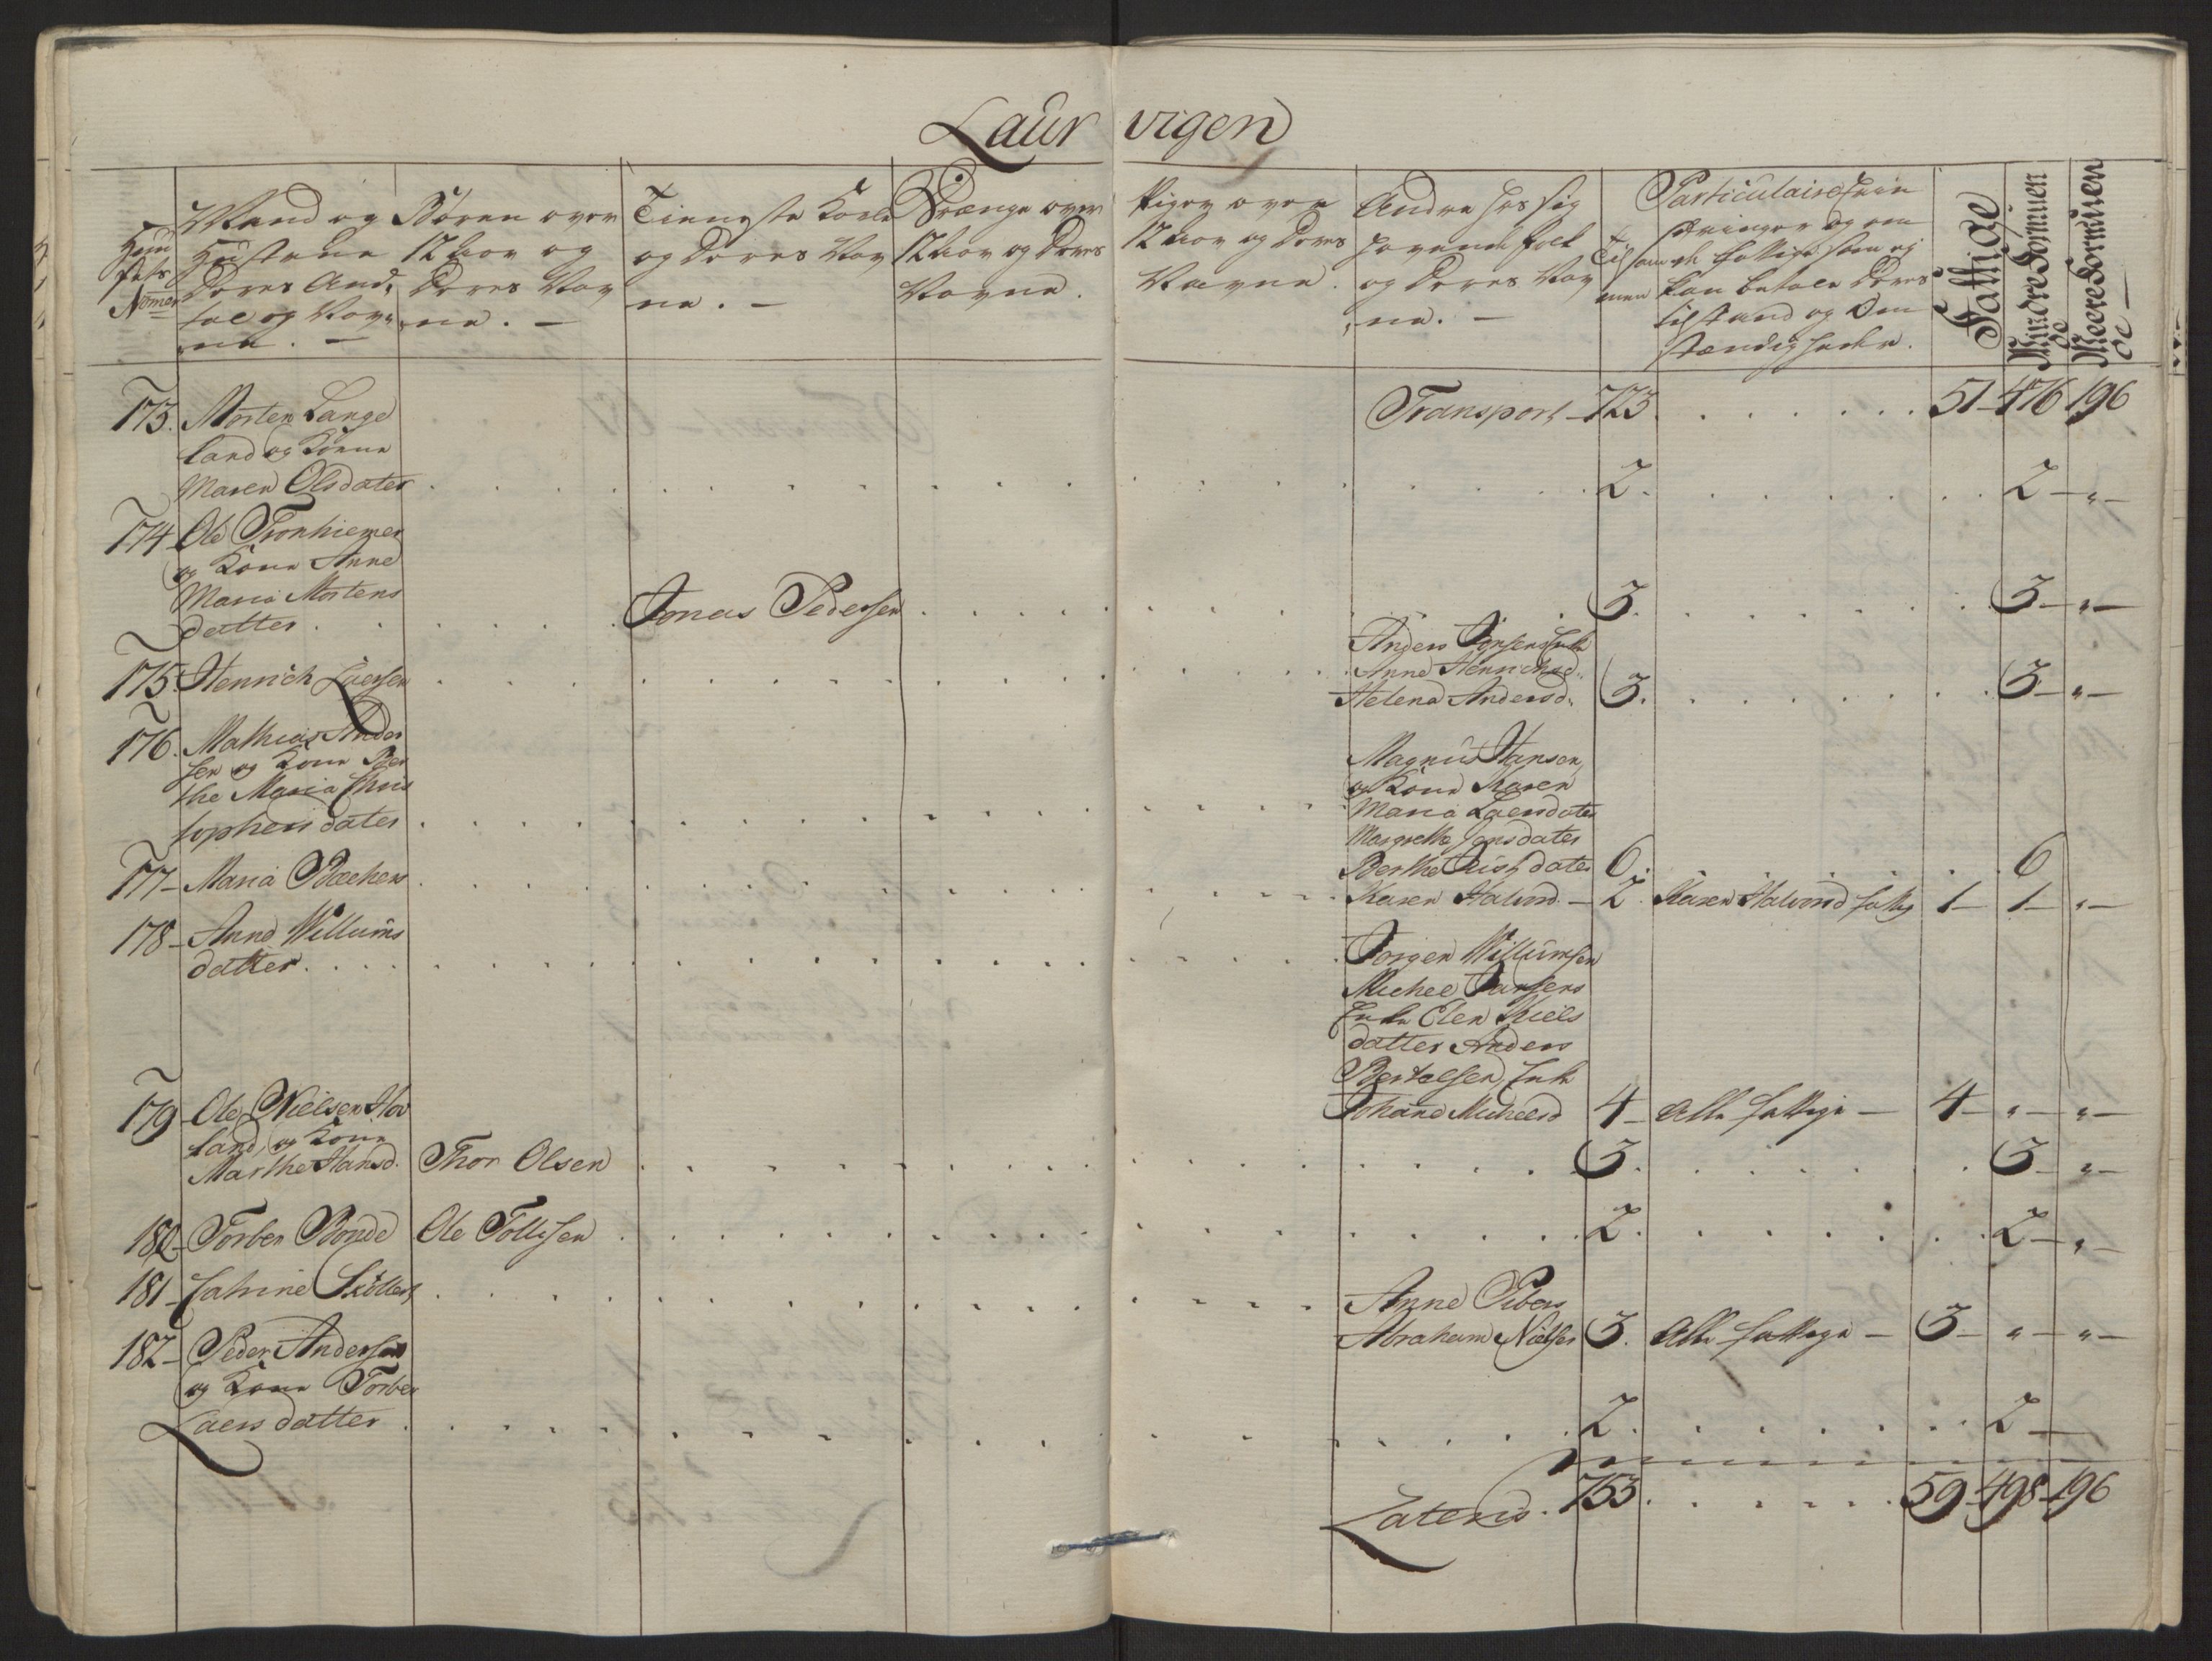 Laurvigen
Huusets Nomer
Mand og Hustrue Deres Andtal og Navne. —
Børen over 12 Aar og Deres Navne. —
Tieneste Karle og Deres Navne. —
Drænge over 12 Aar og Deres Navne.
Piger over 12 Aar og Deres Navne.
Andre hos sig havende folk og Deres Navne. —
Tilsammen
Fattige
Mindre Formuende
Meere Formuende —
Transport 723. 51 476 196
173. Morten Lange
land og Kone
Maren Olsdater 2. 2 — " —
174 Ole Tronhiemer
og Kone Anne
Maria Mortens
datter. Jonas Pedersen 3. 3 — " —
Anders Jonsens Enke
175. Henrich Laersen Anne Henrichsd.
Helena Andersd. 3. 3 — " —
176. Mathias Ander
sen og Kone Ber
the Maria Chris
tophersdater
Magnus Hansen
og Kone Karen
Maria Laersdater
Margrethe Jensdater
Berthe dater 6. 6
177 — Maria Backers Karen Halvord. — 2. Karen Halvord fattig 1 — 1 — " —
178 — Anne Willums
datter. Jørgen Willumsen
Michel Jansens
Enke Elen Niels
datter Anders
Bertelsen Enke
Johane Michelsd 4 — Alle fattige — 4 — " — " —
179 — Ole Nielsen Hov
land, og Kone
Marthe Hansd. Thor Olsen 3. 3 — " —
180 — Torber Bonde Ole Tollefsen 2. 2 — " —
181 — Catrine Anne Pibers
Abraham Nielsen 3. Alle fattige — 3 — " — " —
182 — Peder Andersen
og Kone Torber
Laersdatter. 2. 2 —
Lateris. 753. 59 498 196